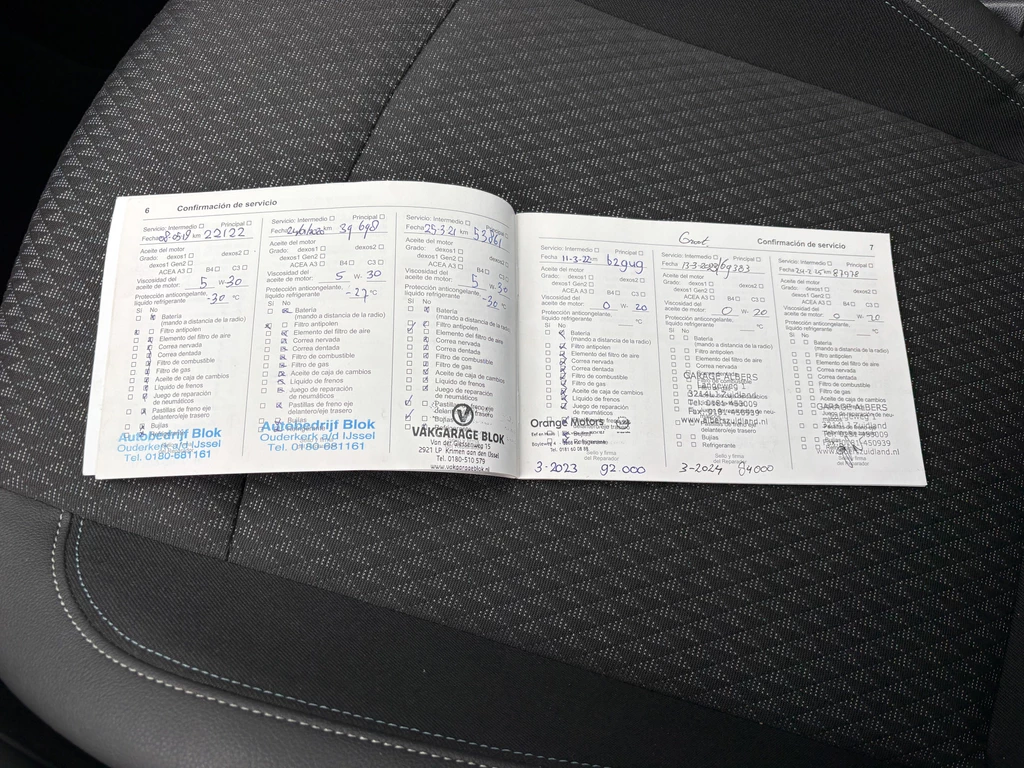 6 Confirmación de servicio
Servicio: Intermedio Principal
Fecha km 22122
Aceite del motor
Grado: dexos1 dexos2
dexos1 Gen2
ACEA A3 B4 C3
Viscosidad del
aceite de motor: 5 W- 30
Protección anticongelante,
líquido refrigerante -30 °C
Sí No
Batería
(mando a distancia de la radio)
Filtro antipolen
Elemento del filtro de aire
Correa nervada
Correa dentada
Filtro de combustible
Filtro de gas
Aceite de caja de cambios
Líquido de frenos
Juego de reparación
de neumáticos
Pastillas de freno eje
delantero/eje trasero
Autobedrijf Blok
Ouderkerk a/d IJssel
Tel. 0180-681161
Servicio: Intermedio Principal
Fecha km 39698
Aceite del motor
Grado: dexos1 dexos2
dexos1 Gen2
ACEA A3 B4 C3
Viscosidad del
aceite de motor: 5 W- 30
Protección anticongelante,
líquido refrigerante -27 °C
Sí No
Batería
(mando a distancia de la radio)
Filtro antipolen
Elemento del filtro de aire
Correa nervada
Correa dentada
Filtro de combustible
Filtro de gas
Aceite de caja de cambios
Líquido de frenos
Juego de reparación
de neumáticos
Pastillas de freno eje
delantero/eje trasero
Autobedrijf Blok
Ouderkerk a/d IJssel
Tel. 0180-681161
Servicio: Intermedio Principal
Fecha 25-3-21 km 53861
Aceite del motor
Grado: dexos1 dexos2
dexos1 Gen2
ACEA A3 B4 C3
Viscosidad del
aceite de motor: 5 W- 30
Protección anticongelante,
líquido refrigerante -30 °C
Sí No
Batería
(mando a distancia de la radio)
Filtro antipolen
Elemento del filtro de aire
Correa nervada
Correa dentada
Filtro de combustible
Filtro de gas
Aceite de caja de cambios
Líquido de frenos
Juego de reparación
de neumáticos
VAKGARAGE BLOK
Van der Giessenweg 15
2921 LP Krimpen aan den IJssel
Tel. 0180-510 579
www.vakgarageblok.nl
Groot Confirmación de servicio 7
Servicio: Intermedio Principal
Fecha 11-3-22 km 62949
Aceite del motor
Grado: dexos1 dexos2
dexos1 Gen2
ACEA A3 B4 C3
Viscosidad del
aceite de motor: 0 W- 20
Protección anticongelante,
líquido refrigerante °C
Sí No
Batería
(mando a distancia de la radio)
Filtro antipolen
Elemento del filtro de aire
Correa nervada
Correa dentada
Filtro de combustible
Filtro de gas
Aceite de caja de cambios
Líquido de frenos
Juego de reparación
de neumáticos
Orange Motors
Refrigerante
Sello y firma
del Reparador
3-2023 92.000
Servicio: Intermedio Principal
Fecha 69383
Aceite del motor
Grado: dexos1 dexos2
dexos1 Gen2
ACEA A3 B4 C3
Viscosidad del
aceite de motor: 0 W- 20
Protección anticongelante,
líquido refrigerante °C
Sí No
Batería
(mando a distancia de la radio)
Filtro antipolen
Elemento del filtro de aire
Correa nervada
GARAGE ALBERS
Langeweg 1
Zuidland
Tel: 0181-453009
Fax: 0181-450939
www.alberszuidland.nl
Bujías
Refrigerante
Sello y firma
del Reparador
3-2024 94000
Servicio: Intermedio Principal
Fecha km 87978
Aceite del motor
Grado: dexos1 dexos2
dexos1 Gen2
ACEA A3 B4 C3
Viscosidad del
aceite de motor: 0 W- 20
Protección anticongelante,
líquido refrigerante °C
Sí No
Batería
(mando a distancia de la radio)
Filtro antipolen
Elemento del filtro de aire
Correa nervada
Correa dentada
Filtro de combustible
Filtro de gas
Aceite de caja de cambios
Líquido de frenos
GARAGE ALBERS
www.alberszuidland.nl
Sello y firma
del Reparador